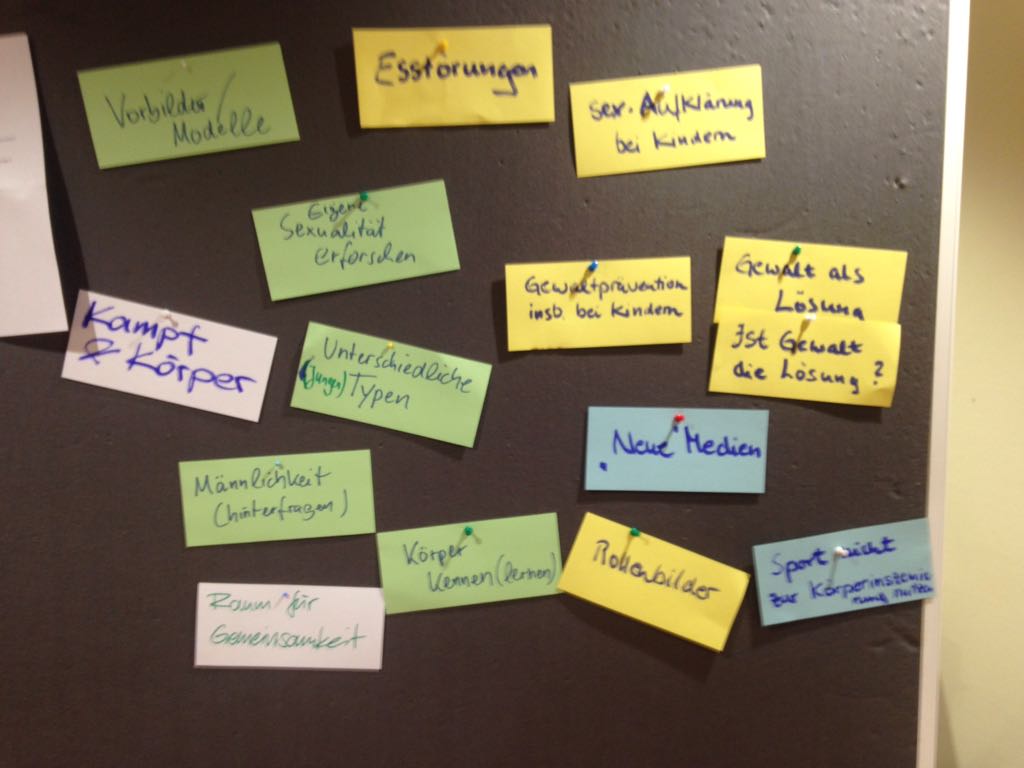 Vorbilder/
Modelle
Esstörungen
sex. Aufklärung
bei Kindern
Eigene
Sexualität
erforschen
Gewaltprävention
insb. bei Kindern
Gewalt als
Lösung
Ist Gewalt
die Lösung?
Kampf
& Körper
Unterschiedliche
(Jungen) Typen
Neue Medien
Männlichkeit
(hinterfragen)
Körper
kennen (lernen)
Rollenbilder
Sport nicht
zur Körperinszenie
rung nutzen
Raum für
Gemeinsamkeit